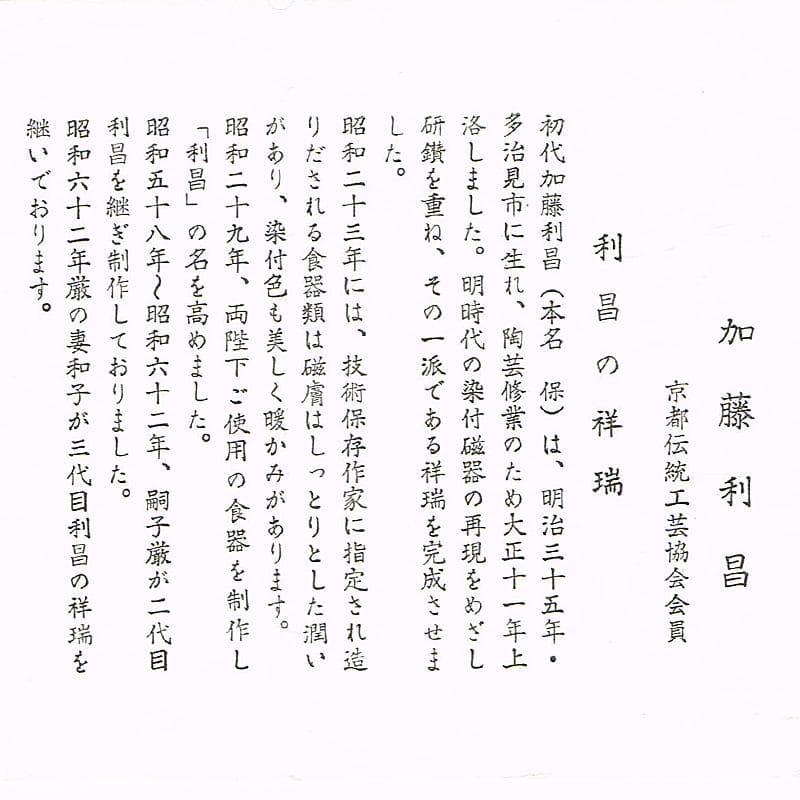 加藤利昌
京都伝統工芸協会会員
利昌の祥瑞
初代加藤利昌（本名　保）は、明治三十五年・
多治見市に生れ、陶芸修業のため大正十一年上
洛しました。明時代の染付磁器の再現をめざし
研鑽を重ね、その一派である祥瑞を完成させま
した。
昭和二十三年には、技術保存作家に指定され造
りだされる食器類は磁膚はしっとりとした潤い
があり、染付色も美しく暖かみがあります。
昭和二十九年、両陛下ご使用の食器を制作し
「利昌」の名を高めました。
昭和五十八年～昭和六十二年、嗣子厳が二代目
利昌を継ぎ制作しておりました。
昭和六十二年厳の妻和子が三代目利昌の祥瑞を
継いでおります。